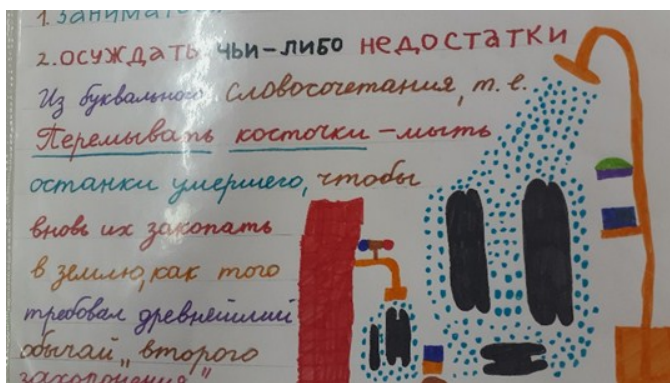 1. Занимать
2. осуждать чьи-либо недостатки
Из буквального словосочетания, т. е.
Перемывать косточки – мыть
останки умершего, чтобы
вновь их закопать
в землю, как того
требовал древнейший
обычай „второго
захоронения"